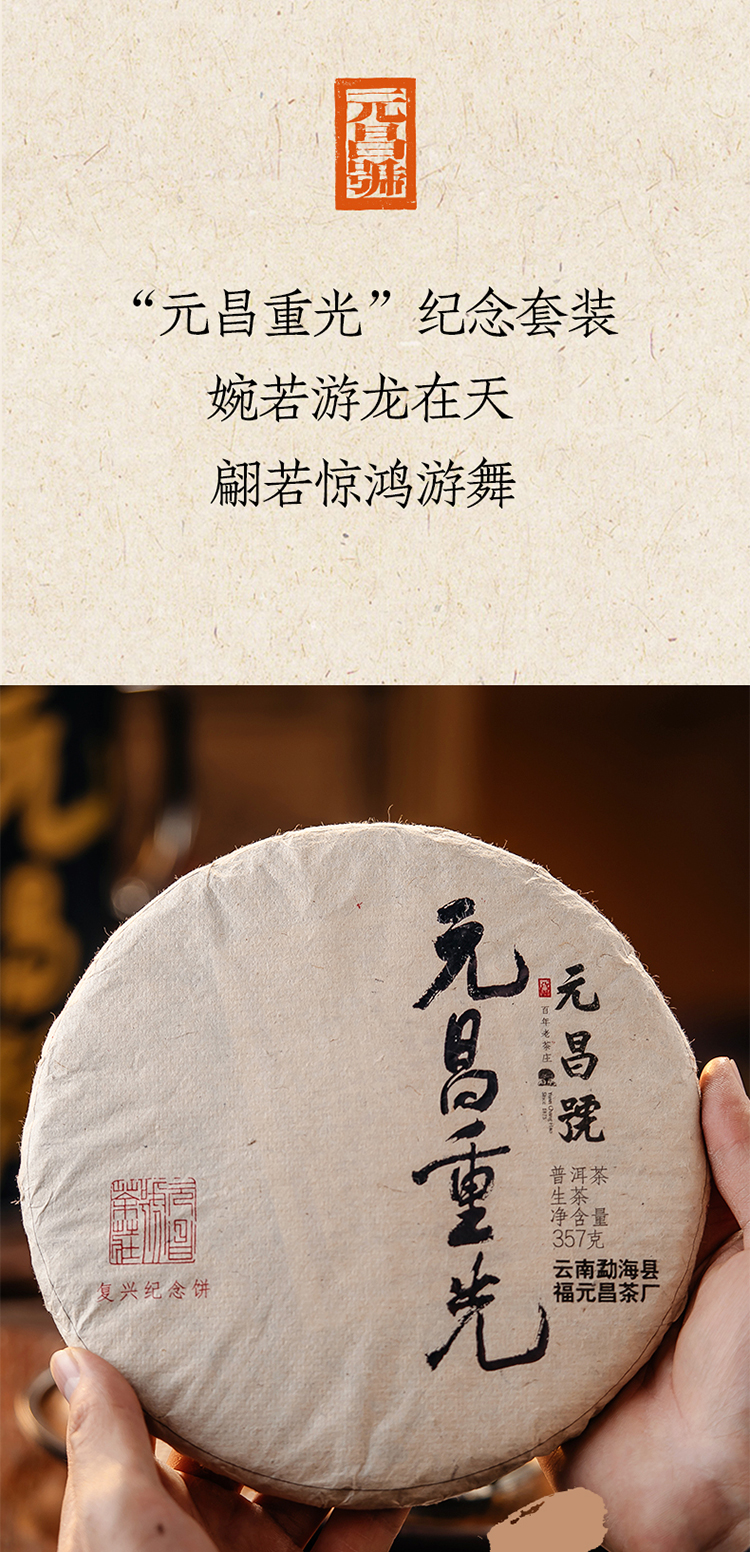 元昌號
“元昌重光”纪念套装
婉若游龙在天
翩若惊鸿游舞
元昌重光
元昌號
百年老茶庄
普洱茶
生茶
净含量
357克
云南勐海县
福元昌茶厂
元昌
號
茶莊
复兴纪念饼